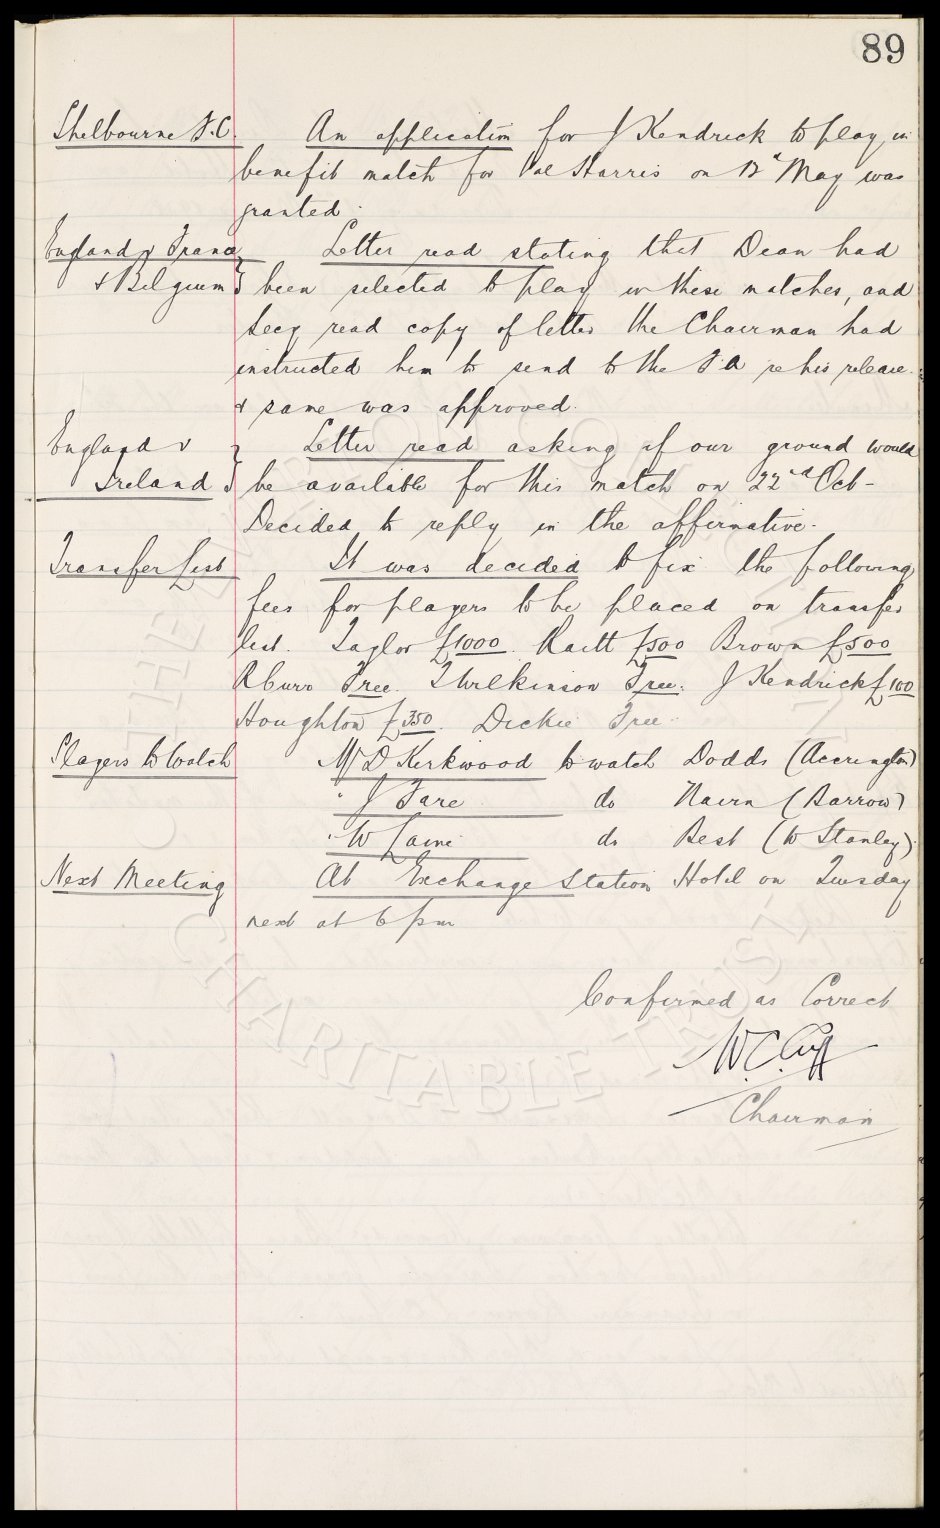 89
Shelbourne F.C. An application for J Kendrick to play in
benefit match for Val Harris on 12th May was
granted.
England v France Letter read stating that Dean had
& Belgium } been selected to play in these matches, and
Secy read copy of letter the Chairman had
instructed him to send to the F.A re his release.
& same was approved.
England v } Letter read asking if our ground would
Ireland } be available for this match on 22nd Oct -
Decided to reply in the affirmative.
Transfer List It was decided to fix the following
fees for players to be placed on transfer
list. Taylor £1000. Raitt £500 Brown £500
Free. J Wilkinson Free. J Kendrick £100
Houghton £350. Dickie Free.
Players to Watch Mr D Kirkwood to watch Dodds (Accrington)
" J Fare do Nairn (Barrow)
" W do Best (W Stanley).
Next Meeting At Exchange Station Hotel on Tuesday
next at 6 pm
Confirmed as Correct
W.C. Cuff
Chairman
THE EVERTON COLLECTION
CHARITABLE TRUST